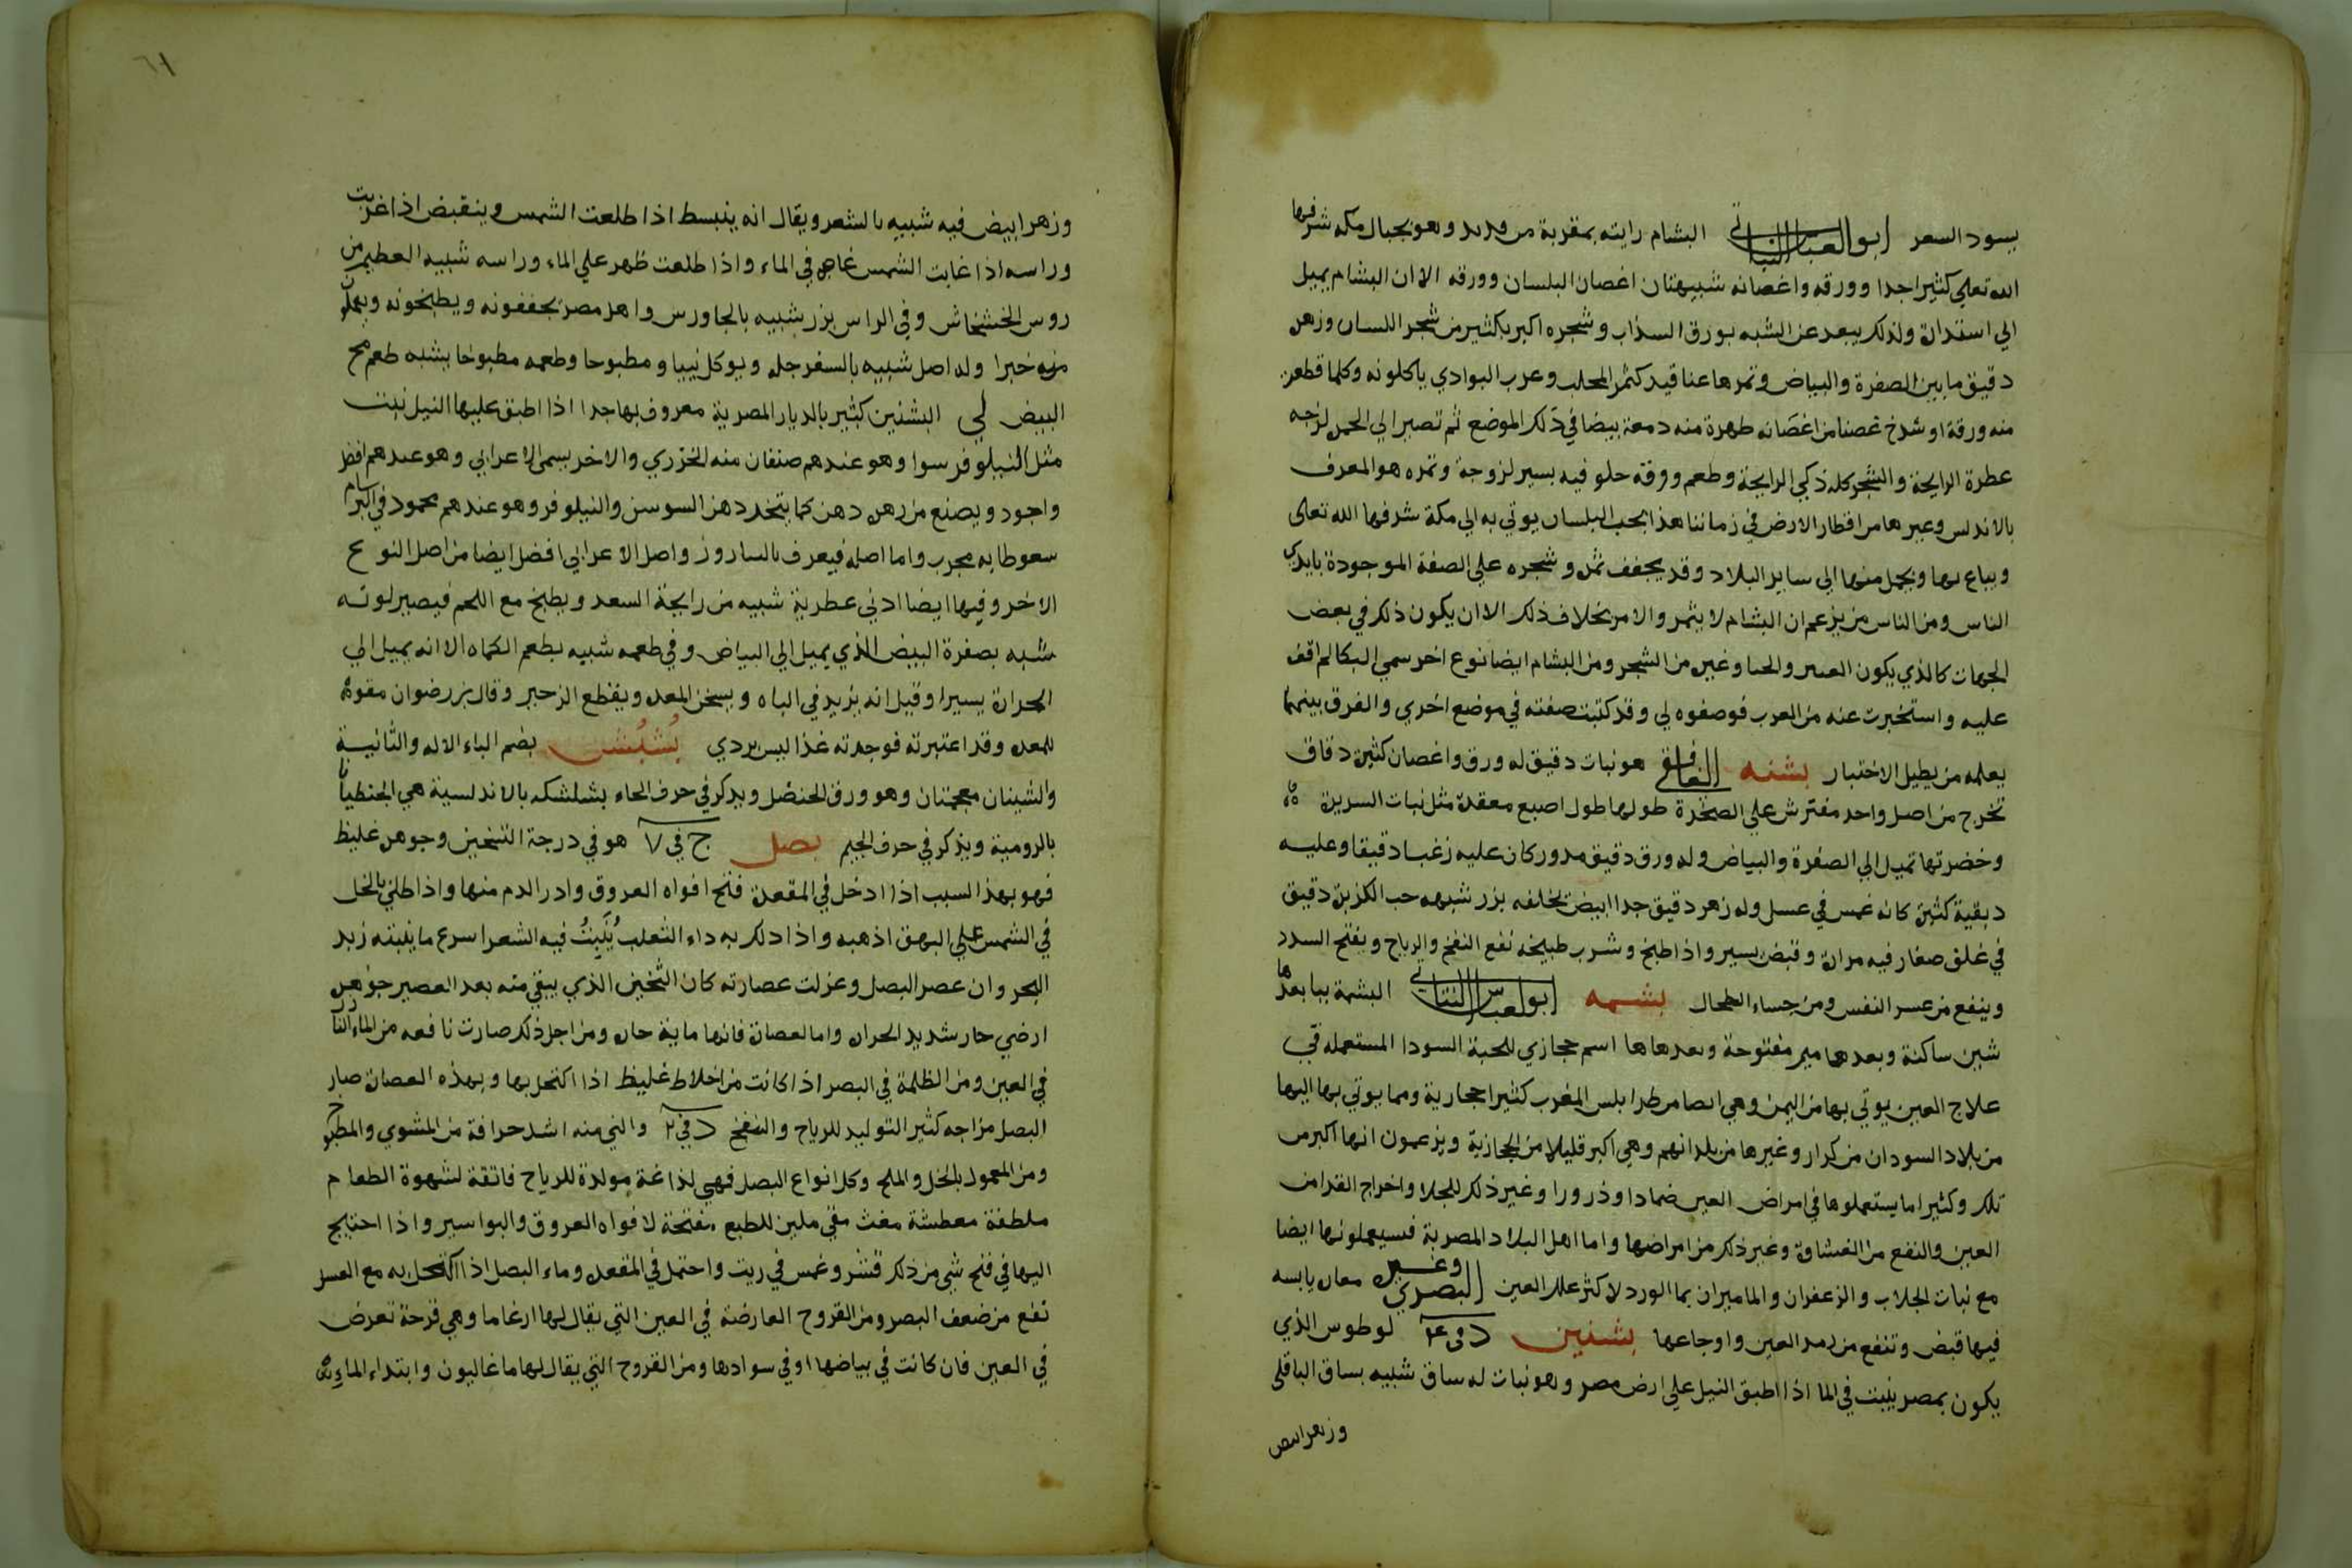 يسود الشعر ابو العباس النباتي البشام رايته بمقربة من قديد وهو بجبال مكه شرفها
الله تعلي كثيرا جدا وورقه واغصانه شبيهتان اغصان البلسان وورقه الا ان البشام يميل
الي استدارة ولذلك يبعد عن الشبه بورق السذاب وشجره اكبر بكثير من شجر اللسان وزهره
دقيق ما بين الصفرة والبياض وتمرها عناقيد كثمر المحلب وعرب البوادي ياكلونه وكلما قطعن
منه ورقة او شدخ غصنا من اغصانه طهرة منه دمعة بيضا في ذلك الموضع ثم تصير الي الحمرة لزجه
عطرة الرايحة والشجر كله ذكي الرايحة وطعم ورقه حلو فيه يسير لزوجة وتمره هو المعرف
بالاندلس وغيرها من اقطار الارض في زماننا هذا بحب البلسان يوتي به الي مكة شرفها الله تعالى
ويباع بها ويحمل منها الي ساير البلاد وقد يجفف ثمره وشجره علي الصفة الموجودة بايدي
الناس ومن الناس من يزعم ان البشام لا يثمر والامر بخلاف ذلك الا ان يكون ذلك في بعض
الجهات كالذي يكون العسر والحنا وغيره من الشجر ومن البشام ايضا نوع اخر سمي البكا لم اقف
عليه واستخبرت عنه من العرب فوصفوه لي وقد كتبت صفته في موضع اخري والفرق بينهما
يعلمه من يطيل الاختبار بشنه الغافقي هو نبات دقيق له ورق واغصان كثيرة دقاق
تخرج من اصل واحد مفترش علي الصخرة طولها طول اصبع معقدة مثل نبات السريرة
وخضرتها تميل الي الصفرة والبياض وله ورق دقيق مدور كان عليه زغبا دقيقا وعليه
دبقية كثيرة كانه غمس في عسل وله زهر دقيق جدا ابيض تخلفه بزر شبهه حب الكزبرة دقيق
في غلف صغار فيه مرارة وقبض يسير واذا طبخ وشرب طبيخه نفع النفخ والرياح ويفتح السدد
وينفع من عسر النفس ومن جساء الطحال بشمه ابو العباس النباتي البشمة ببا بعدها
شين ساكنة وبعدها ميم مفتوحة وبعدها ها اسم حجازي للحبة السودا المستعمله في
علاج العين يوتي بها من اليمن وهي ايضا من طرابلس المغرب كثيرا حجارية ومما يوتي بها اليها
من بلاد السودان من كرار وغيرها من بلدانهم وهي اكبر قليلا من الحجازية ويزعمون انها اكبر من
تلك وكثيرا ما يستعملوها في امراض العين ضمادا وذرورا وغير ذلك للجلا واخراج القدا من
العين والنفع من الغشاوة وغير ذلك من امراضها واما اهل البلاد المصرية فسيعملونها ايضا
مع نبات الجلاب والزعفران والماميران بما الورد لاكثر علل العين البصري وغيره معان يابسه
فيها قبض وتنفع من رمد العين واوجاعها بشنين د في ٤ لوطوس الذي
يكون بمصر ينبت في الما اذا اطبق النيل علي ارض مصر وهو نبات له ساق شبيه بساق الباقلى
وزهر ابيض
٦١
وزهر ابيض فيه شبيه بالشعر ويقال انه ينبسط اذا طلعت الشمس وينقبض اذا غربت
وراسه اذا غابت الشمس غاص في الماء واذا طلعت ظهر علي الماء وراسه شبيه العظيم من
روس الخشخاش وفي الراس بزر شبيه بالجاورس واهل مصر يجففونه ويطبخونه ويعملون
منه خبزا وله اصل شبيه بالسفرجله ويوكل نييا ومطبوخا وطعمه مطبوخا يشبه طعم مح
البيض لي البشنين كثير بالديار المصرية معروف بها جدا اذا اطبق عليها النيل نبت
مثل النيلوفر سوا وهو عندهم صنفان منه الخزري والاخر يسمى الاعرابي وهو عندهم افضل
واجود ويصنع من زهره دهن كما يتخذ دهن السوسن والنيلوفر وهو عندهم محمود في البرسام
سعوطا به مجرب واما اصله فيعرف بالبيارون واصل الاعرابي افضل ايضا من اصل النوع
الاخر وفيها ايضا ادني عطرية شبيه من رايحة السعد ويطبخ مع اللحم فيصير لونه
شبه بصفرة البيض الذي يميل الي البياض وفي طعمه شبيه بطعم الكماه الا انه يميل الي
الحرارة يسيرا وقيل انه يزيد في الباه ويسخن المعدة ويقطع الزحير وقال بن رضوان مقوية
للمعدة وقد اعتبرته فوجدته غذا ليس بردي بُشبُش بضم الباء الاوله والثانية
والشينان معجمتان وهو ورق الحنظل ويذكر في حرف الحاء بشلشكه بالاندلسية هي الجنطيانا
بالرومية ويذكر في حرف الجيم بصل ج في ٧ هو في درجة التسخين وجوهره غليظ
فهو بهذا السبب اذا ادخل في المقعدة فتح افواه العروق وادر الدم منها واذا طلي بالخل
في الشمس علي البهق اذهبه واذا دلك به داء الثعلب يُنبِتُ فيه الشعر اسرع ما ينبته زبد
البحر وان عصر البصل وعزلت عصارته كان الثخين الذي يبقي منه بعد العصير جوهر
ارضي حار شديد الحرارة واما العصارة فانها ماينة حارة ومن اجل ذلك صارت نافعه من الماء النازل
في العين ومن الظلمة في البصر اذا كانت من اخلاط غليظ اذا اكتحل بها وبهذه العصارة صار
البصل مزاجه كثير التوليد للرياح والنفخ د في ٢ والني منه اشد حرافة من المشوي والمطبوخ
ومن المعمول بالخل والملح وكل انواع البصل فهي لذاغة مولدة للرياح فاتقة لشهوة الطعام
ملطفة معطشة مغث مقي ملين للطبع مفتحة لافواه العروق والبواسير واذا احتيج
اليها في فتح شي من ذلك قشر وغمس في زيت واحتمل في المقعدة وماء البصل اذا اكتحل به مع العسل
نفع من ضعف البصر ومن القروح العارضة في العين التي يقال لها ارغاما وهي قرحة تعرض
في العين فان كانت في بياضها او في سوادها ومن القروح التي يقال لها ماغاليون وابتداء الماء